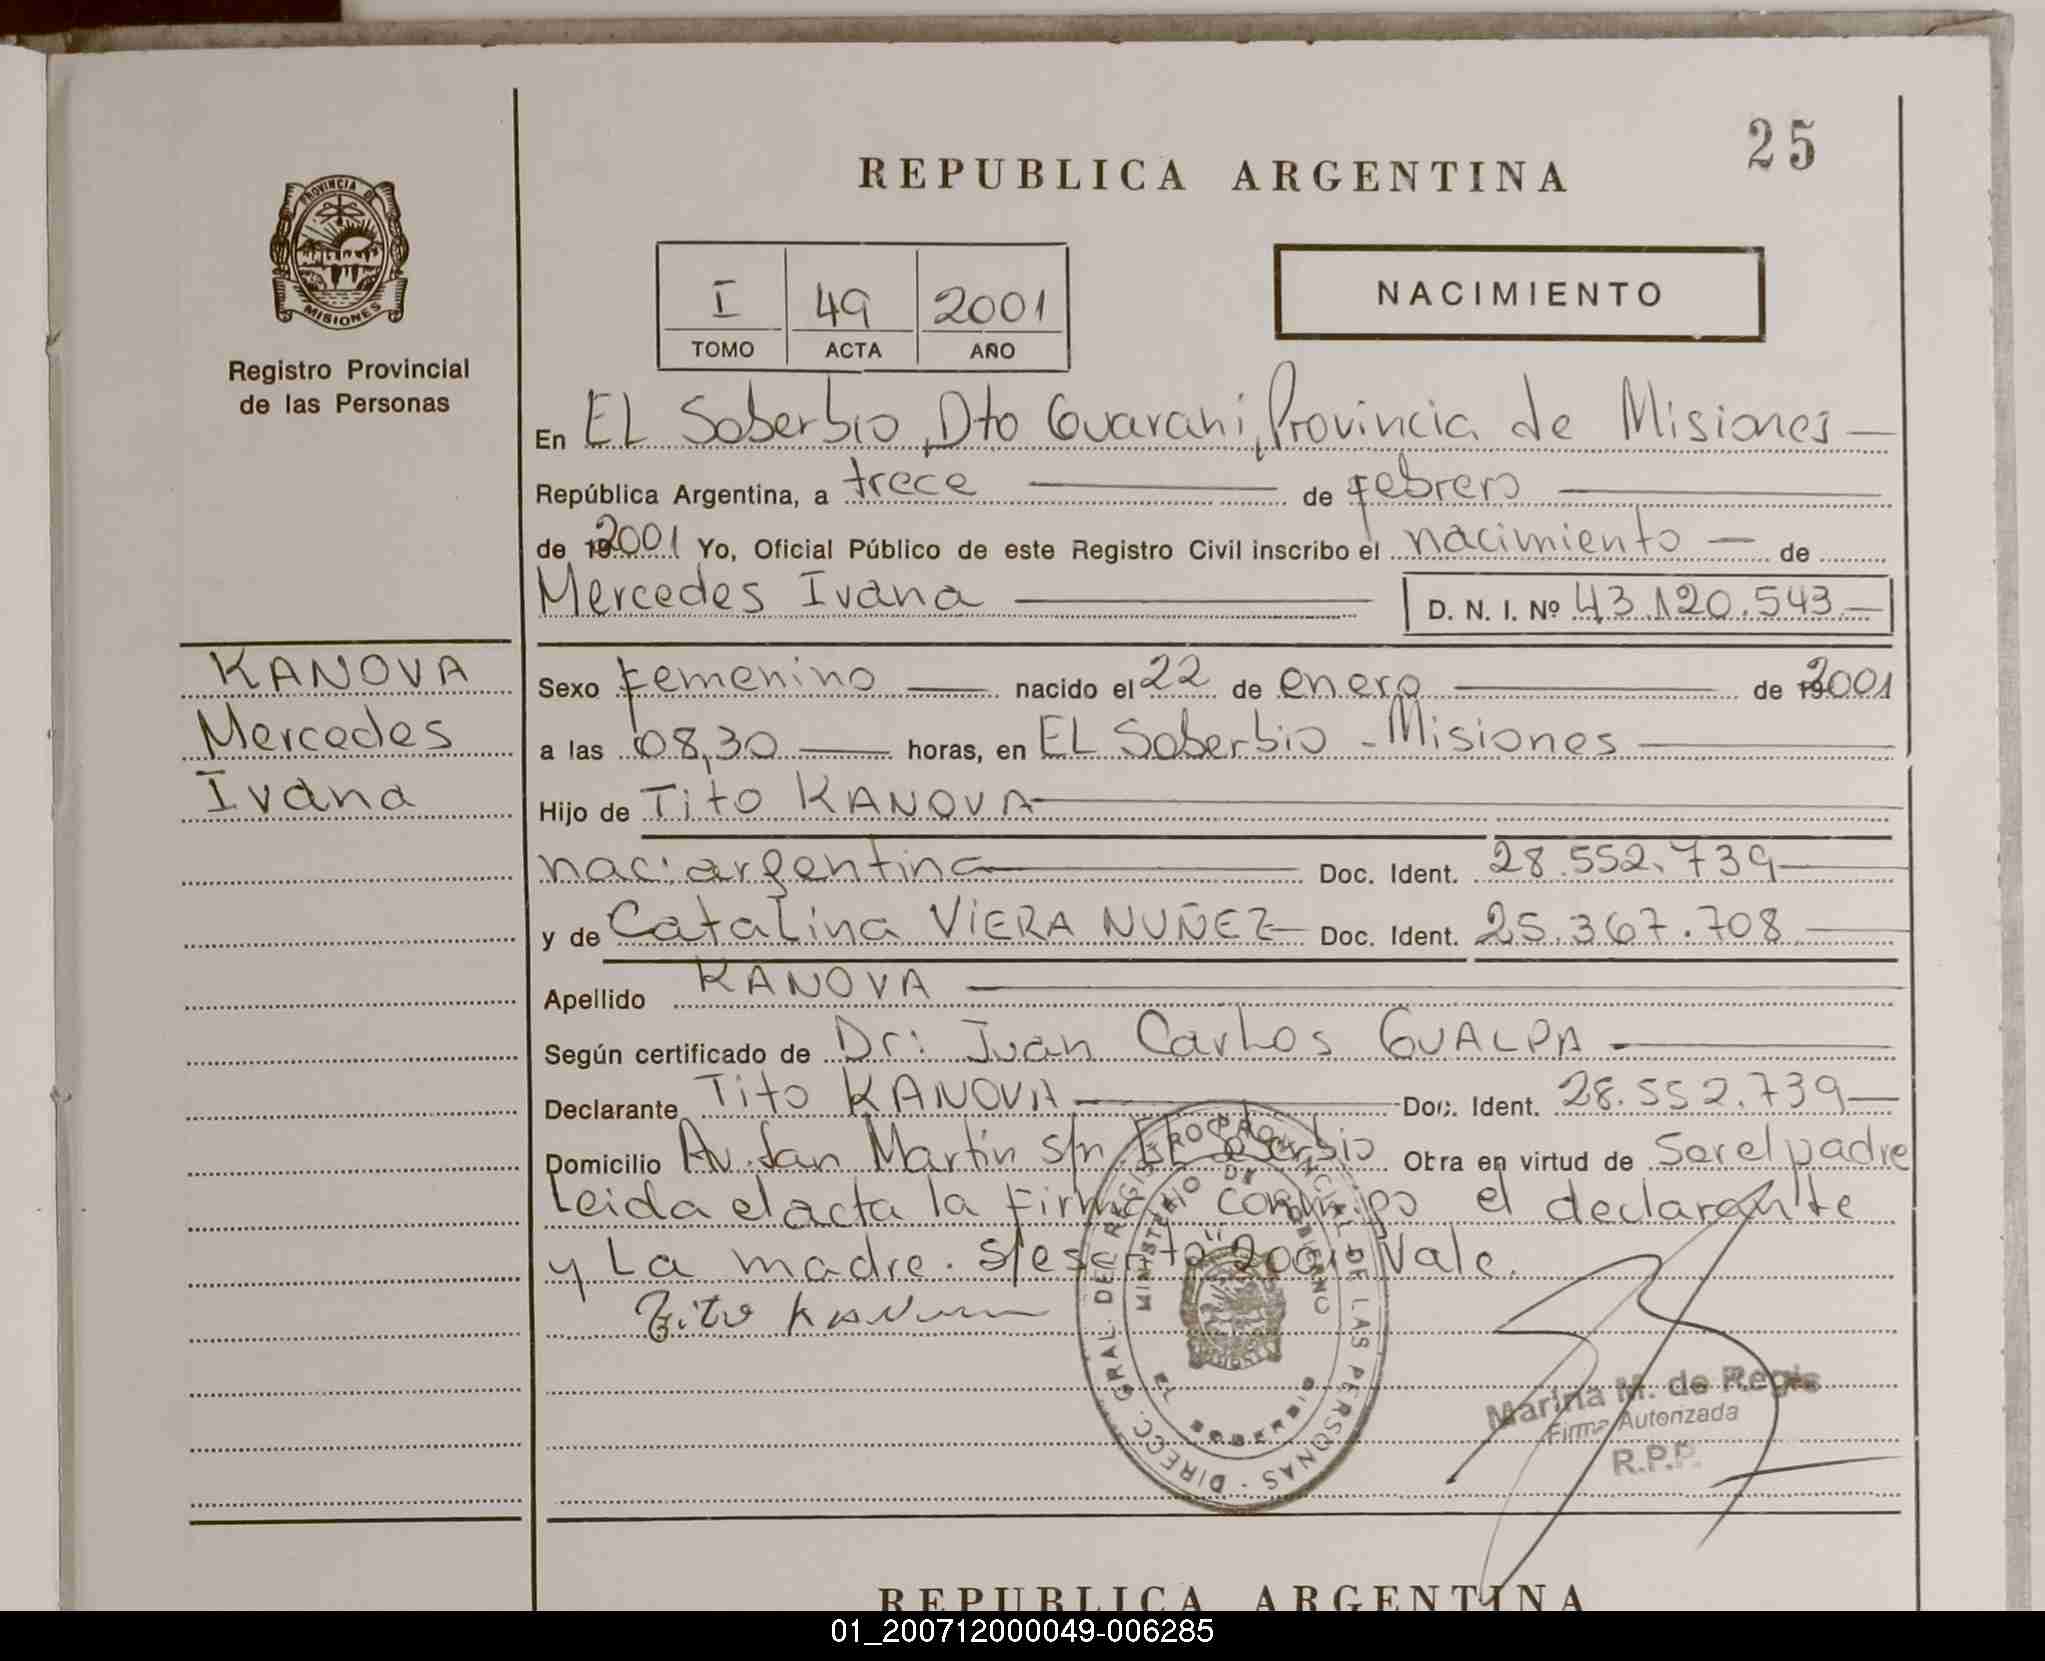 25
REPUBLICA ARGENTINA
PROVINCIA DE
MISIONES
Registro Provincial
de las Personas
I 49 2001
TOMO ACTA AÑO
NACIMIENTO
En EL Soberbio, Dto Guarani, Provincia de Misiones
República Argentina, a trece de febrero
de 2001 Yo, Oficial Público de este Registro Civil inscribo el nacimiento de
Mercedes Ivana D. N. I. Nº 43.120.543
KANOVA
Mercedes
Ivana
Sexo femenino nacido el 22 de enero de 2001
a las 08,30 horas, en EL Soberbio - Misiones
Hijo de Tito KANOVA
nac: argentina Doc. Ident. 28.552.739
y de Catalina VIERA NUÑEZ Doc. Ident. 25.367.708
Apellido KANOVA
Según certificado de Dr: Juan Carlos GUALPA
Declarante Tito KANOVA Doc. Ident. 28.552.739
Domicilio Av. San Martín s/n El Soberbio Obra en virtud de Ser el padre
Leida el acta la firma conmigo el declarante
y La madre. S/es "2001" Vale.
Tito KANOVA
DIRECC. GRAL. DEL REGISTRO PROVINCIAL DE LAS PERSONAS
MINISTERIO DE GOBIERNO
EL SOBERBIO
Marina M. de Regis
Firma Autorizada
R.P.P.
REPUBLICA ARGENTINA
01_200712000049-006285